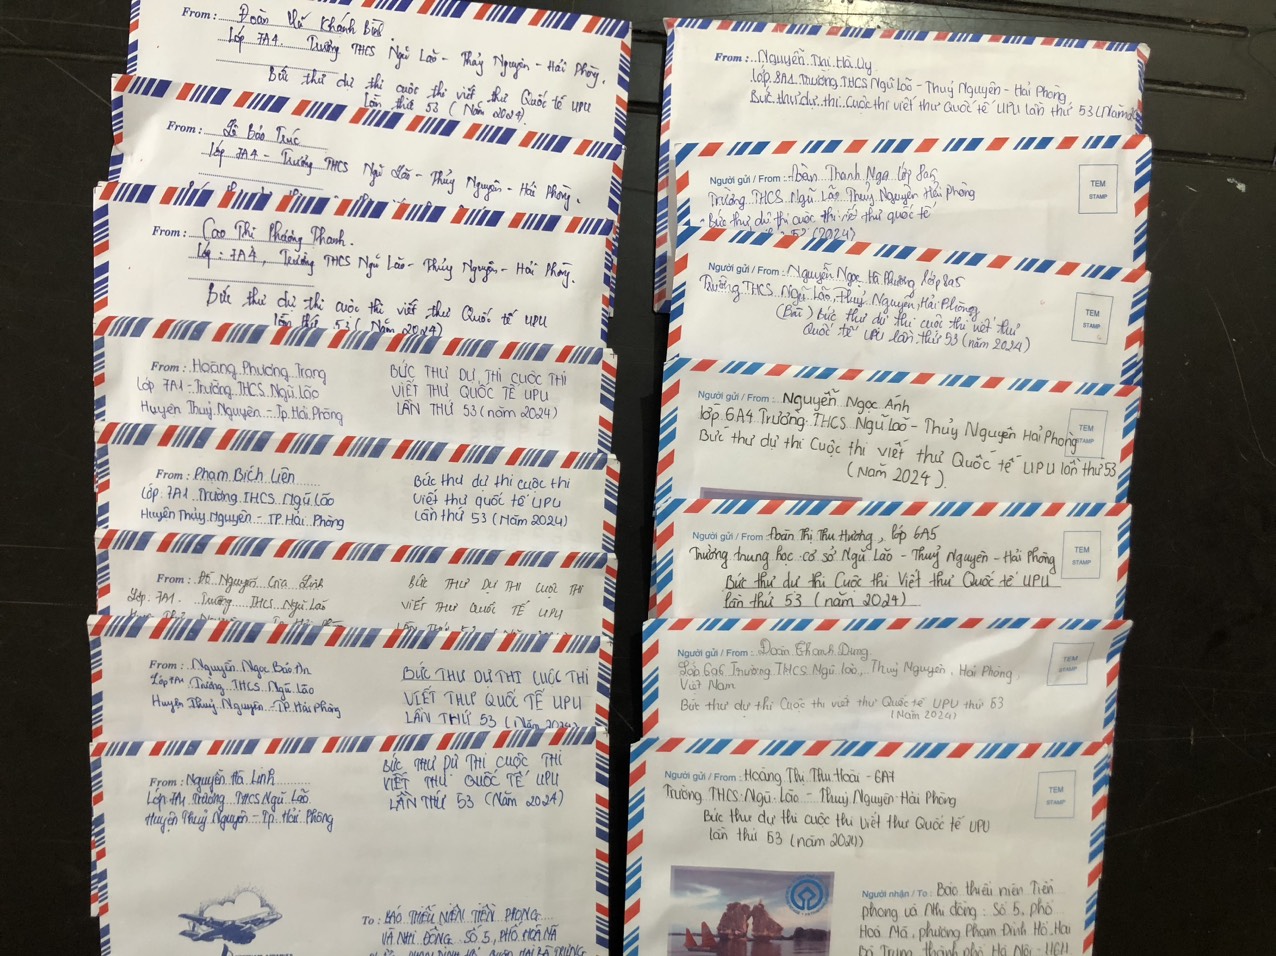 Đoàn Vũ Khánh Biên
Lớp 7A4. Trường THCS Ngũ Lão - Thủy Nguyên - Hải Phòng.
Bức thư dự thi cuộc thi viết thư Quốc tế UPU
lần thứ 53 (Năm 2024).
From: Lê Bảo Trúc
lớp 7A4 - Trường THCS Ngũ Lão - Thủy Nguyên - Hải Phòng.
From: Cao Thị Phương Thanh.
Lớp: 7A4, Trường THCS Ngũ Lão - Thủy Nguyên - Hải Phòng.
Bức thư dự thi cuộc thi viết thư Quốc tế UPU
lần thứ 53 (Năm 2024)
From: Hoàng Phương Trang
Lớp 7A1 - Trường THCS Ngũ Lão
Huyện Thuỷ Nguyên - Tp. Hải Phòng
BỨC THƯ DỰ THI CUỘC THI
VIẾT THƯ QUỐC TẾ UPU
LẦN THỨ 53 (năm 2024)
From: Phạm Bích Liên
Lớp 7A1 Trường THCS Ngũ Lão
Huyện Thủy Nguyên - TP. Hải Phòng
Bức thư dự thi cuộc thi
viết thư quốc tế UPU
lần thứ 53 (Năm 2024)
From: Đỗ Nguyễn Gia Linh
Lớp 7A1 Trường THCS Ngũ Lão
BỨC THƯ DỰ THI CUỘC THI
VIẾT THƯ QUỐC TẾ UPU
LẦN THỨ 53 (NĂM 2024)
From: Nguyễn Ngọc Bảo An
Lớp 7A1 Trường THCS Ngũ Lão
Huyện Thuỷ Nguyên TP. Hải Phòng
BỨC THƯ DỰ THI CUỘC THI
VIẾT THƯ QUỐC TẾ UPU
LẦN THỨ 53 (Năm 2024)
From: Nguyễn Hà Linh
Lớp 7A1 Trường THCS Ngũ Lão
Huyện Thuỷ Nguyên - Tp. Hải Phòng
BỨC THƯ DỰ THI CUỘC THI
VIẾT THƯ QUỐC TẾ UPU
LẦN THỨ 53 (Năm 2024)
To: BÁO THIẾU NIÊN TIỀN PHONG
VÀ NHI ĐỒNG SỐ 5, PHỐ HOÀ MÃ
From: Nguyễn Đại Hà Vy
lớp 8A1 Trường THCS Ngũ Lão - Thuỷ Nguyên - Hải Phòng
Bức thư dự thi Cuộc thi viết thư Quốc tế UPU lần thứ 53 (Năm
Người gửi / From: Đoàn Thanh Nga lớp 8a6
Trường THCS Ngũ Lão Thủy Nguyên Hải Phòng
Bức thư dự thi cuộc thi viết thư quốc tế
53 (2024)
TEM
STAMP
Người gửi / From: Nguyễn Ngọc Hà Phương lớp 8a5
Trường THCS Ngũ Lão, Thuỷ Nguyên, Hải Phòng
(Bài) Bức thư dự thi cuộc thi viết thư
Quốc tế UPU lần thứ 53 (năm 2024)
TEM
STAMP
Người gửi / From: Nguyễn Ngọc Ánh
lớp 6A4 Trường THCS Ngũ Lão - Thủy Nguyên Hải Phòng
Bức thư dự thi Cuộc thi viết thư Quốc tế UPU lần thứ 53
(Năm 2024).
Người gửi / From: Đoàn Thị Thu Hương, lớp 6A5
Trường trung học cơ sở Ngũ Lão - Thuỷ Nguyên - Hải Phòng
Bức thư dự thi Cuộc thi Viết thư Quốc tế UPU
lần thứ 53 (năm 2024)
TEM
STAMP
Người gửi / From: Đoàn Thanh Dung
Lớp 6a6 Trường THCS Ngũ lão, Thuỷ Nguyên, Hải Phòng,
Việt Nam
Bức thư dự thi Cuộc thi viết thư Quốc tế UPU thứ 53
(Năm 2024)
TEM
STAMP
Người gửi / From: Hoàng Thị Thu Hoài - 6A7
Trường THCS Ngũ Lão - Thuỷ Nguyên Hải Phòng
Bức thư dự thi cuộc thi Viết thư Quốc tế UPU
lần thứ 53 (năm 2024)
TEM
STAMP
Người nhận / To: Báo thiếu niên Tiền
phong và Nhi đồng: Số 5, phố
Hoà Mã, phường Phạm Đình Hổ, Hai
Bà Trưng, thành phố Hà Nội - 11611